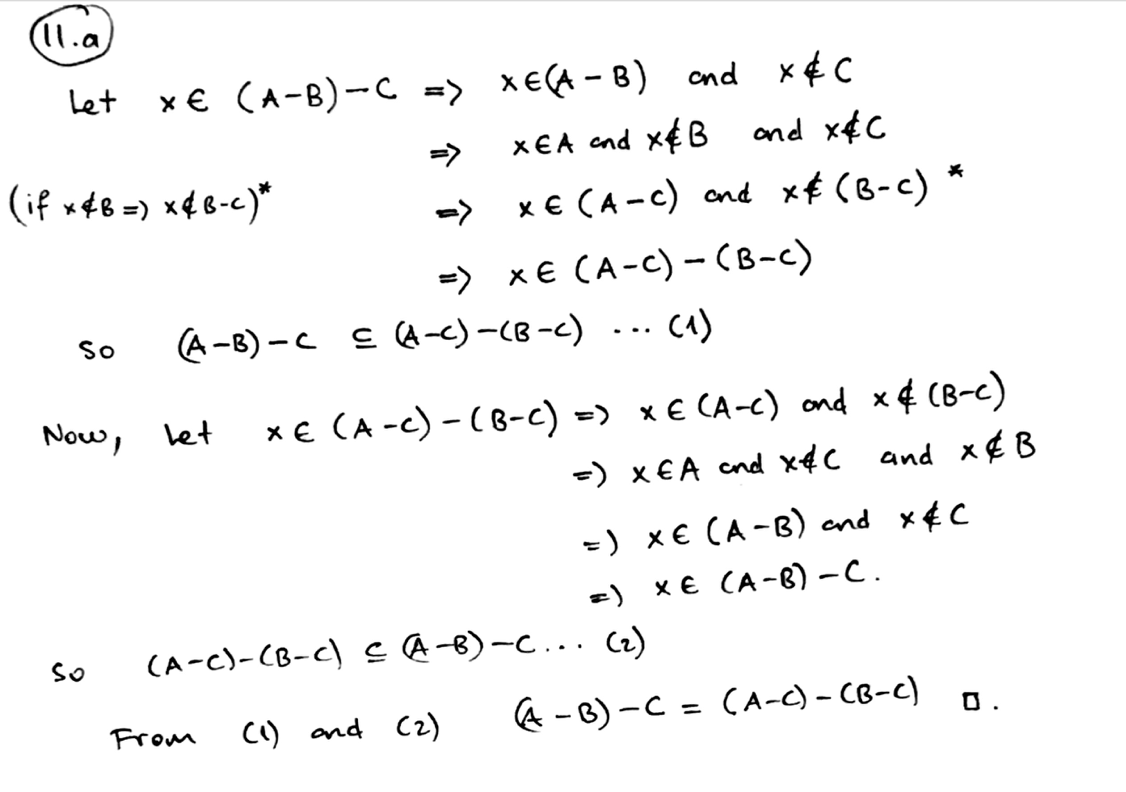 11.a
Let x ∈ (A-B)-C => x∈(A-B) and x∉C
=> x∈A and x∉B and x∉C
(if x∉B => x∉B-C)* => x∈(A-C) and x∉(B-C) *
=> x∈(A-C)-(B-C)
So (A-B)-C ⊆ (A-C)-(B-C) ... (1)
Now, let x∈(A-C)-(B-C) => x∈(A-C) and x∉(B-C)
=> x∈A and x∉C and x∉B
=> x∈(A-B) and x∉C
=> x∈(A-B)-C.
So (A-C)-(B-C) ⊆ (A-B)-C... (2)
From (1) and (2) (A-B)-C = (A-C)-(B-C) □.